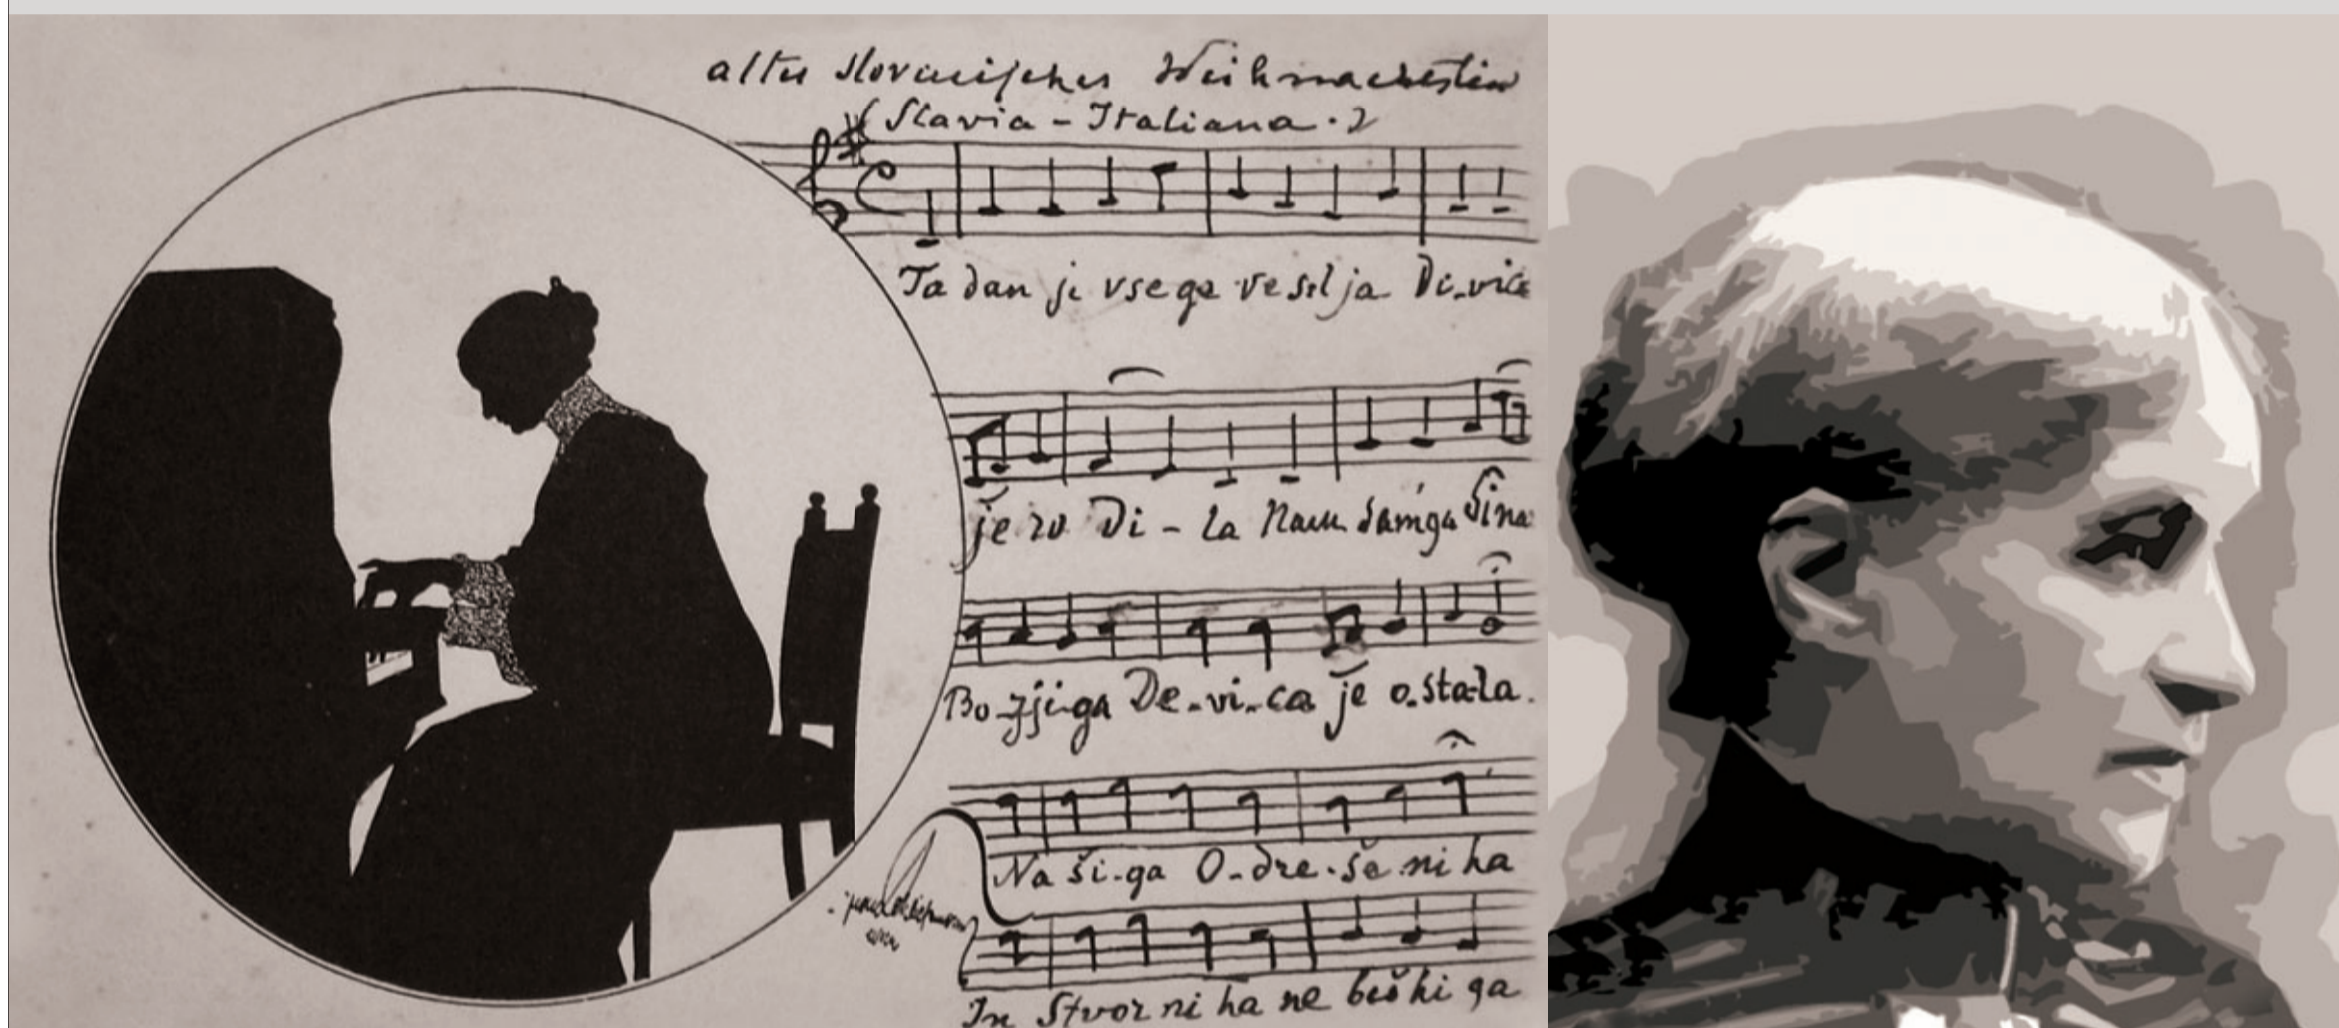 altes slovenisches Weihnachtslied
(Slavia-Italiana.)
Ta dan je vsega veselja Di-vica
je ro di-la Nam samga Sina
Bo-zji-ga De-vi-ca je o-sta-la.
Na ši-ga O-dre-še-ni ka
In Stvor ni ka ne beški ga